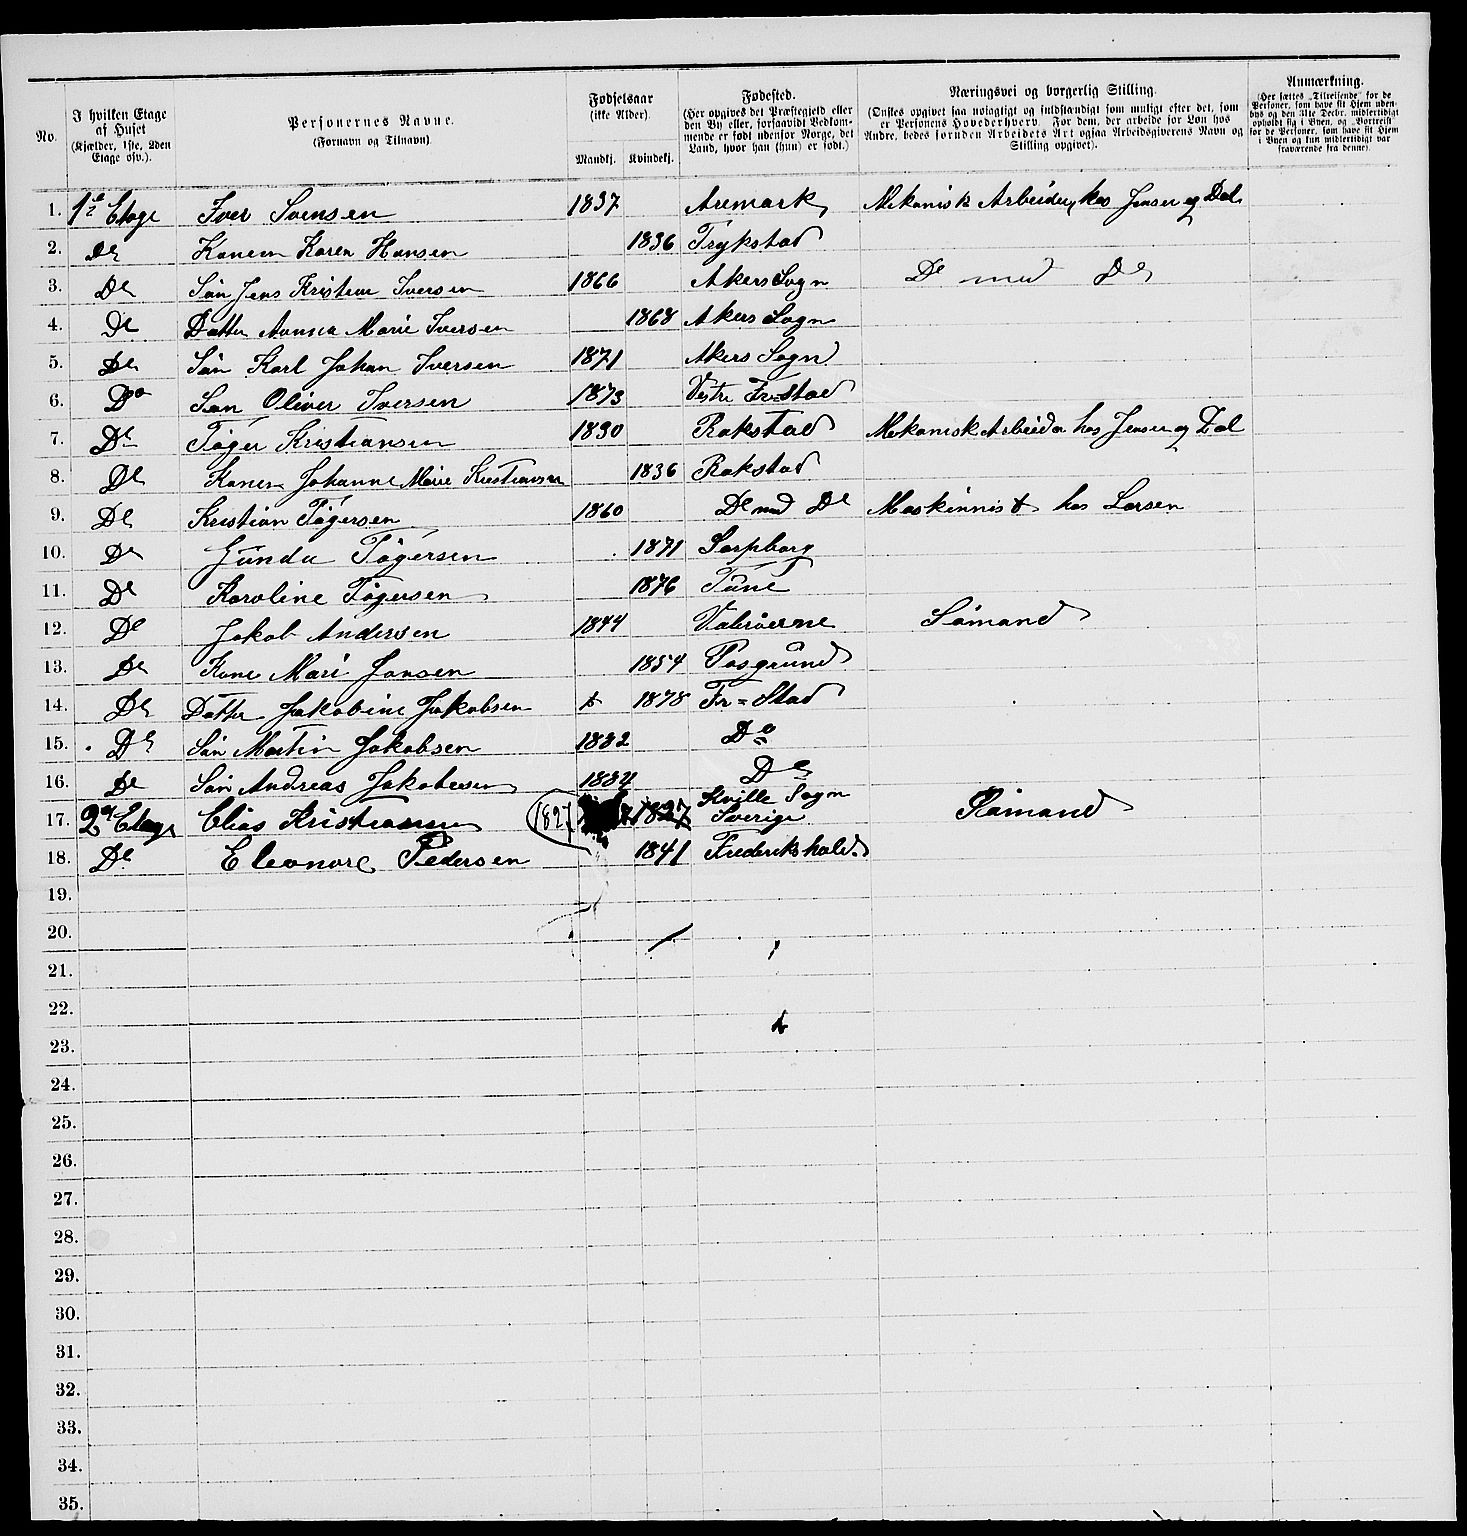 No.
I hvilken Etage af Huset (Kjælder, 1ste, 2den Etage osv.).
Personernes Navne. (Fornavn og Tilnavn).
Fødselsaar (ikke Alder). Mandkj. Kvindekj.
Fødested. (Her opgives det Præstegjeld eller den By eller, forsaavidt Vedkommende er født udenfor Norge, det Land, hvor han (hun) er født.)
Næringsvei og borgerlig Stilling. (Ønskes opgivet saa nøiagtigt og fuldstændigt som muligt efter det, som er Personens Hovederhverv. For dem, der arbeide for Løn hos Andre, bedes foruden Arbeidets Art ogsaa Arbeidsgiverens Navn og Stilling opgivet).
Anmærkning. (Her sættes „Tilreisende“ for de Personer, som have sit Hjem udenbys og den 31te Decbr. midlertidigt opholdt sig i Byen, og „Bortreist“ for de Personer, som have sit Hjem i Byen og kun midlertidigt var fraværende fra denne).
1. 1e Etage Iver Svensen 1837 Aremark Mekanisk Arbeider hos Jensen og Dal
2. De Konen Karen Hansen 1836 Trykstad
3. De Søn Jens Kristian Iversen 1866 Akers Sogn De med De
4. De Datter Anna Marie Iversen 1868 Akers Sogn
5. De Søn Karl Johan Iversen 1871 Akers Sogn
6. Do Søn Oliver Iversen 1873 Vestre Fr=stad
7. De Tøger Kristiansen 1830 Rakstad Mekanisk Arbeider hos Jensen og Dal
8. De Konen Johanne Marie Kristiansen 1836 Rakstad
9. De Kristian Tøgersen 1860 De med De Maskinnist hos Larsen
10. De Gunda Tøgersen 1871 Sarpborg
11. De Karoline Tøgersen 1876 Tune
12. De Jakob Andersen 1844 Valøerne Sømand
13. De Kone Mari Jonsen 1854 Posgrund
14. De Datter Jakobine Jakobsen 1878 Fr=Stad
15. De Søn Martin Jakobsen 1882 Do
16. De Søn Andreas Jakobsen 1884 De
17. 2den Etage Elias Kristiansen 1827 1827 Kville Sogn Sverige Sømand
18. De Eleonore Pedersen 1841 Frederikshald
19.
20.
21.
22.
23.
24.
25.
26.
27.
28.
29.
30.
31.
32.
33.
34.
35.